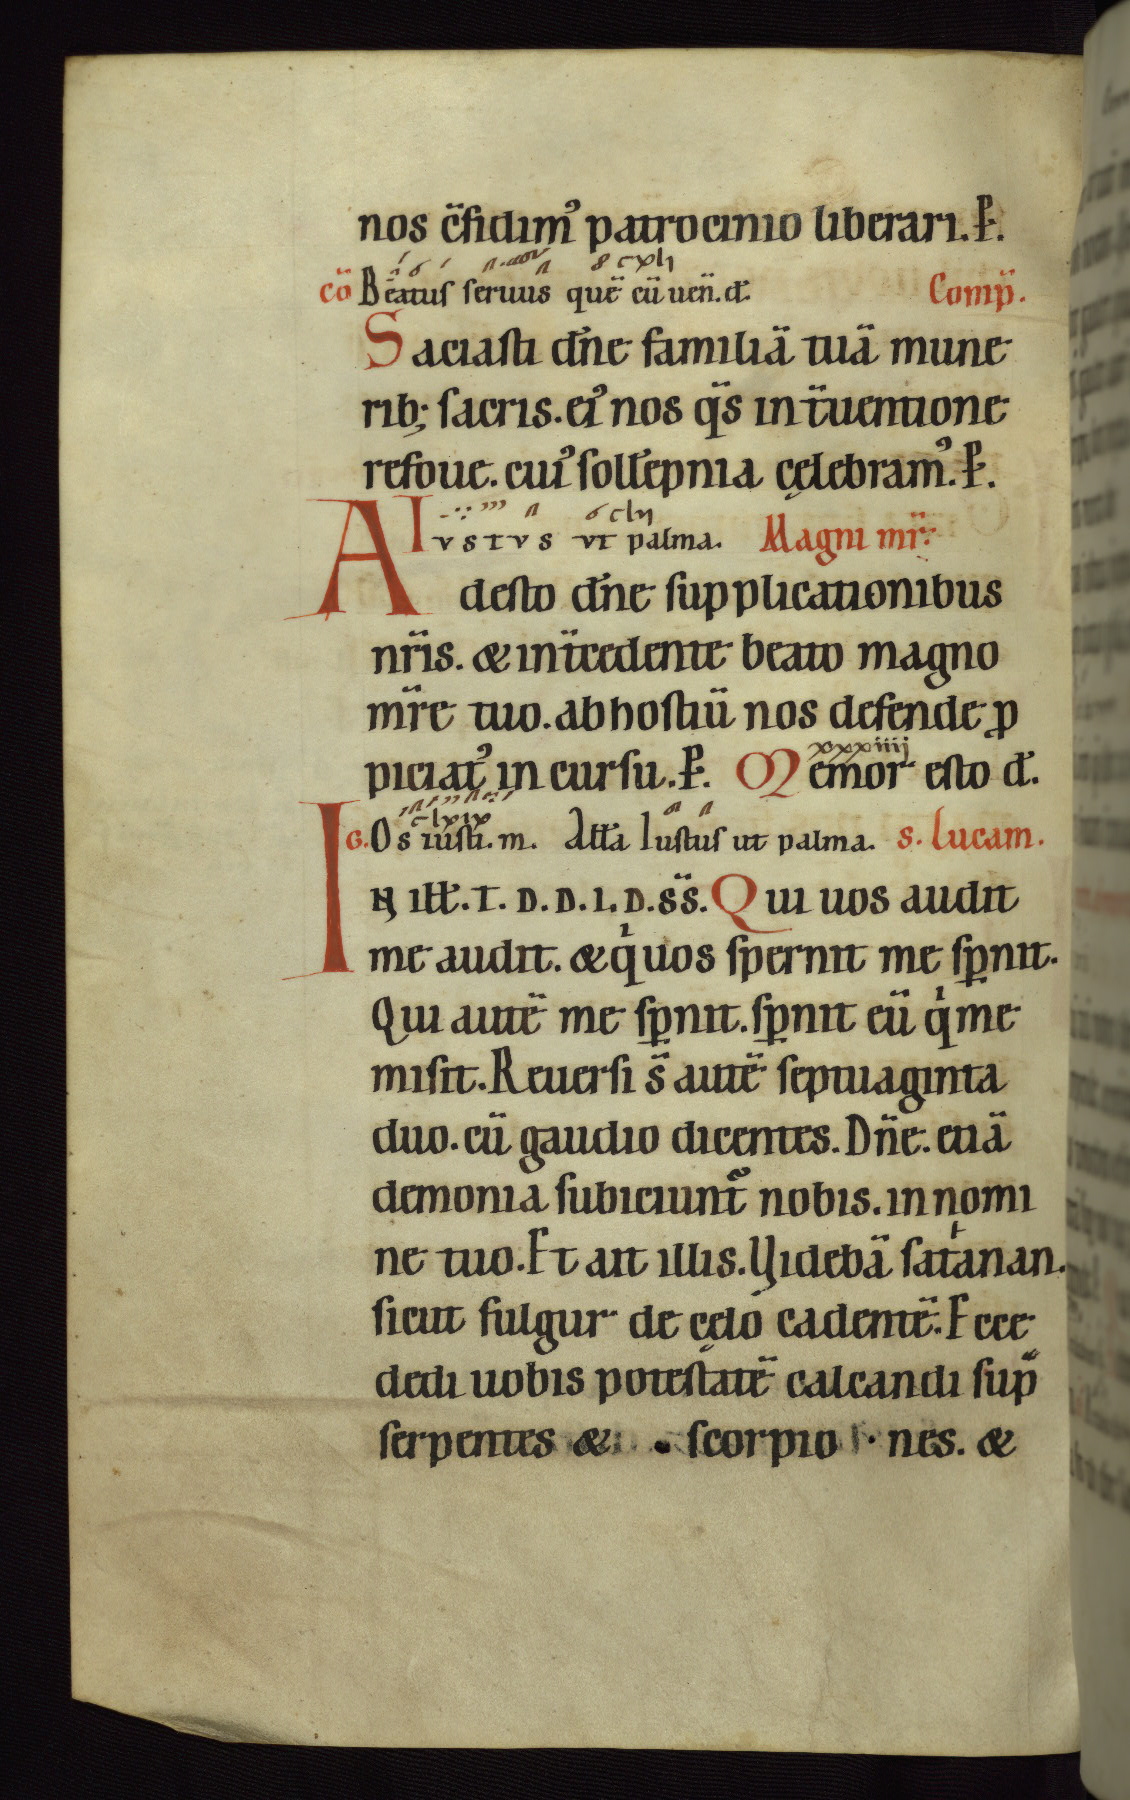 nos c̄fidim᾿ patrocinio liberari. P.
cō Beatus seruus quē cū uen̄. d. Comp̄.
Saciasti dn̄e familiā tuā mune
rib; sacris. ei᾿ nos qs̄ int̄uentione
refoue. cui᾿ sollēpnia celebram᾿. P.
Iustus ut palma. Magni mr̄.
Adesto dn̄e supplicationibus
nr̄is. & int̄cedente beato magno
mr̄e tuo. ab hostiū nos defende p
piciat᾿ in cursu. P. Memor esto d.
G. Os iusti. m. All̄a Iustus ut palma. S. Lucam.
IN ill̄. T. D. D. I. D. ss̄. Qui uos audit
me audit. & q uos spernit me spnit.
Qui autē me spnit. spnit eū q me
misit. Reuersi s̄ autē septuaginta
duo. cū gaudio dicentes. Dn̄e. etiā
demonia subiciunt̄ nobis. in nomi
ne tuo. Et ait illis. Uidebā satanan.
sicut fulgur de celo cadentē. Ecce
dedi uobis potestatē calcandi sup̄
serpentes & scorpio nes. &